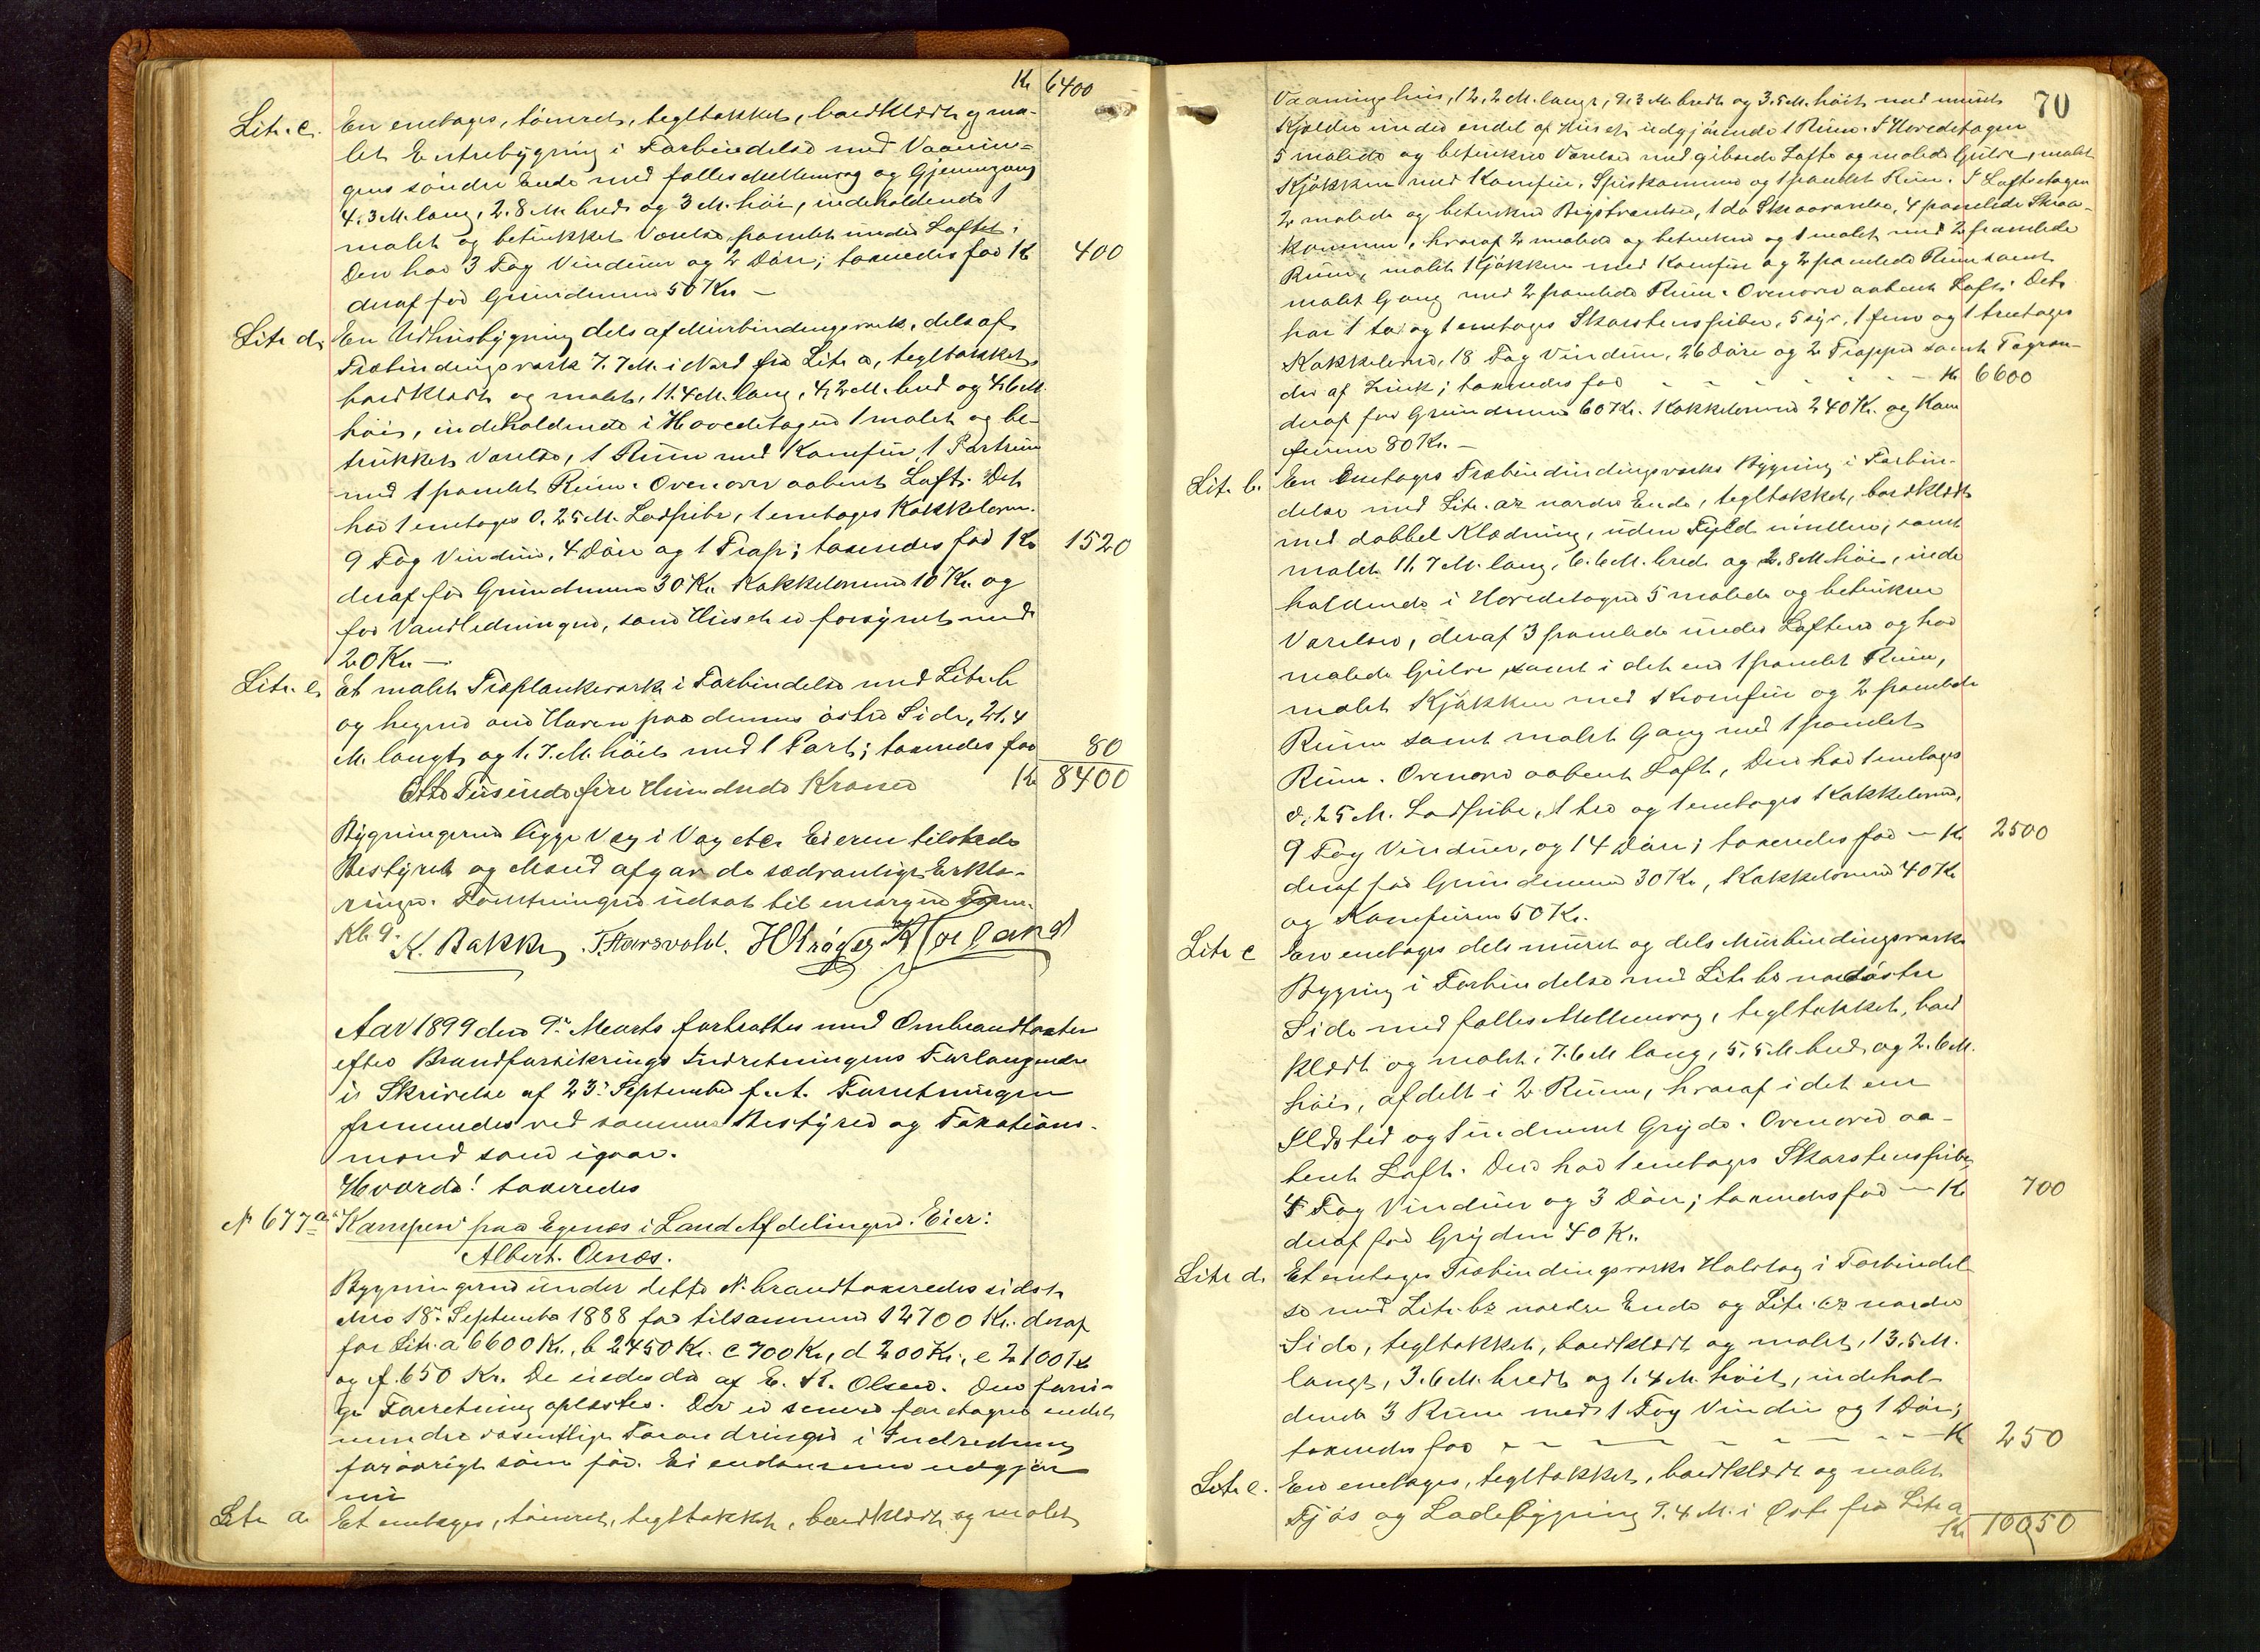 Kr 6400
Litr. c. En enetages, tømret, tegltækket, bordklædt og ma-
let Entrebygning i Forbindelse med Vaanin-
gens søndre Ende med fælles Mellemvæg og Gjennemgang
4.3 M. lang, 2.8 M. bred og 3 M. høi, indeholdende 1
malet og betrukket Værelse, panelet under Loftet.
Den har 3 Fag Vinduer og 2 Døre; taxeredes for Kr 400
deraf for Grundmuren 50 Kr. —
Litr d. En Udhusbygning dels af Murbindingsverk, dels af
Træbindingsverk 7.7 M. i Nord fra Litr a, tegltækket,
bordklædt og malet, 11.4 M. lang, 4,2 M. bred og 4,6 M.
høi, indeholdende i Hovedetagen 1 malet og be-
trukket Værelse, 1 Rum med Komfur, 1 Portrum
med 1 panelet Rum. Ovenover aabent Loft. Det
har 1 enetages 0.25 M. Lodpibe, 1 enetages Kakkelovn.
9 Fag Vinduer, 4 Døre og 1 Trap; taxeredes for Kr 1520
deraf for Grundmuren 30 Kr. Kakkelovnen 10 Kr. og
for Vandledningen, som Huset er forsynet med
20 Kr —
Litr. e. Et malet Træplankeverk i Forbindelse med Litr. b
og hegner om Haven paa dennes østre Side, 21.4
M. langt og 1.7 M. høit med 1 Port; taxeredes for 80
Otte Tusinde fire Hundrede Kroner Kr 8400
Bygningerne ligge Væg i Væg etc. Eieren tilstede
Bestyrer og Mænd afgav de sædvanlige Erklæ-
ringer. Forretningen udsat til imorgen Form.
Kl. 9.
K. Bakke T. Haarsvold. H Trøger
Aar 1899 den 9de Marts fortsattes med Ombrandtaxten
efter Brandforsikrings Indretningens Forlangende
i Skrivelse af 23de September f. A. Forretningen
fremmedes ved samme Bestyrer og Taxations-
mænd som igaar.
Hvorda! taxeredes
No 677a "Kampen" paa Egenæs i Land Afdelingen. Eier:
Albert Aenæs.
Bygningerne under dette No brandtaxeredes sidst
den 18de September 1888 for tilsammen 12700 Kr. deraf
for Litr. a 6600 Kr., b 2450 Kr. c 700 Kr, d 200 Kr., e 2100 Kr
og f. 650 Kr. De eiedes da af E. R. Olsen. Den forri-
ge Forretning oplæstes. Der er senere foretaget endel
mindre væsentlige Forandringer i Indredning
forøvrigt som før. Eiendommen udgjør
nu
Litr a. Et enetages, tømret, tegltækket, bordklædt og malet
70
Vaaningshus, 12,2 M. langt, 9.3 M. bredt og 3.5 M. høit med muret
Kjælder under endel af Huset udgjørende 1 Rum. I Hovedetagen
5 malede og betrukne Værelser med gibsede Lofte og malede Gulve, malet
Kjøkken med Komfur, Spiskammer og 1 panelet Rum. I Loftsetagen
2 malede og betrukne Kvistværelser, 1 do Skraaværelse, 4 panelede Skraa-
kammer, hvoraf 2 malede og betrukne og 1 malet med 2 panelede
Rum, malet Kjøkken med Komfur og 2 panelede Rum samt
malet Gang med 2 panelede Rum. Ovenover aabent Loft. Det
har 1 to og 1 enetages Skorstenspiber, 5 syv, 1 fem og 1 treetages
Kakkelovne, 18 Fag Vinduer, 26 Døre og 2 Trapper samt Tagren-
der af Zink; taxeredes for - - - - Kr 6600
deraf for Grundmuren 60 Kr. Kakkelovnene 240 Kr. og Kom
furene 80 Kr. —
Litr b. En enetages Træbindindingsverks Bygning i Forbin-
delse med Litr. as nordre Ende, tegltækket, bordklædt
med dobbel Klædning, uden Fyld imellem, samt
malet 11.7 M. lang, 6.6 M. bred og 2.8 M. høi, inde
holdende i Hovedetagen 5 malede og betrukne
Værelser, deraf 3 panelede under Loftene og har
malede Gulve samt i det ene 1 panelet Rum,
malet Kjøkken med Komfur og 2 panelede
Rum samt malet Gang med 1 panelet
Rum. Ovenover aabent Loft, Den har 1 enetages
0,25 M. Lodpibe, 1 tre og 1 enetages Kakkelovne,
9 Fag Vinduer, og 14 Døre; taxeredes for — Kr 2500
deraf for Grundmuren 30 Kr., Kakkelovnene 40 Kr
og Komfuren 50 Kr.
Litr c En enetages dels muret og dels Murbindingsverks
Bygning i Forbindelse med Litr. bs nordøstre
Side med fælles Mellemvæg, tegltækket, bord
klædt og malet, 7.6 M lang, 5,5 M. bred og 2.6 M.
høi, afdelt i 2 Rum, hvoraf i det ene
Ildsted og 1 indmuret Gryde. Ovenover aa-
bent Loft. Den har 1 enetages Skorstenspibe,
4 Fag Vinduer og 3 Døre; taxeredes for — Kr 700
deraf for Gryden 40 Kr.
Litr d. Et enetages Træbindingsverks Halvtag i Forbindel-
se med Litr. bs nordre Ende og Litr. cs nordre
Side, tegltækket, bordklædt og malet, 13,5 M.
langt, 3.6 M. bredt og 1.4 M. høit, indehol-
dende 3 Rum med 1 Fag Vindu og 1 Dør;
taxeredes for - - - - Kr 250
Litr e. En enetages, tegltækket, bordklædt og malet
Fjøs og Ladebygning 9.4 M. i Øst fra Litr a
Kr 10050